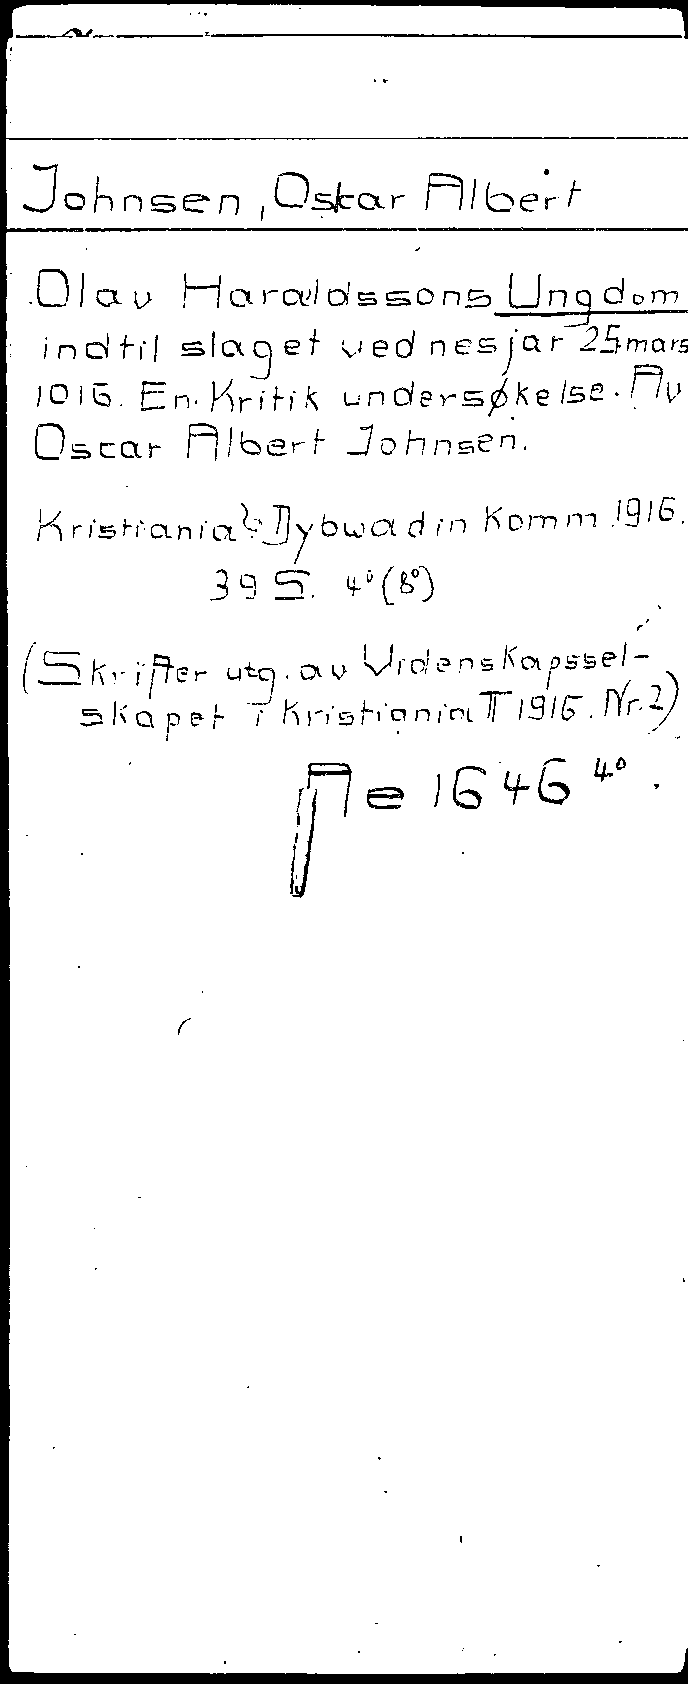 Johnsen, Oskar Albert
Olav Haraldssons Ungdom
indtil slaget ved nesjar 25 mars
1016. En. Kritik undersøkelse. Av
Oscar Albert Johnsen.
Kristiania: Dybwad in Komm. 1916.
39 S. 4° (8°)
(Skrifter utg. av Videnskapssel-
skapet i Kristiania II 1916. Nr. 2)
Ae 1646 4°.